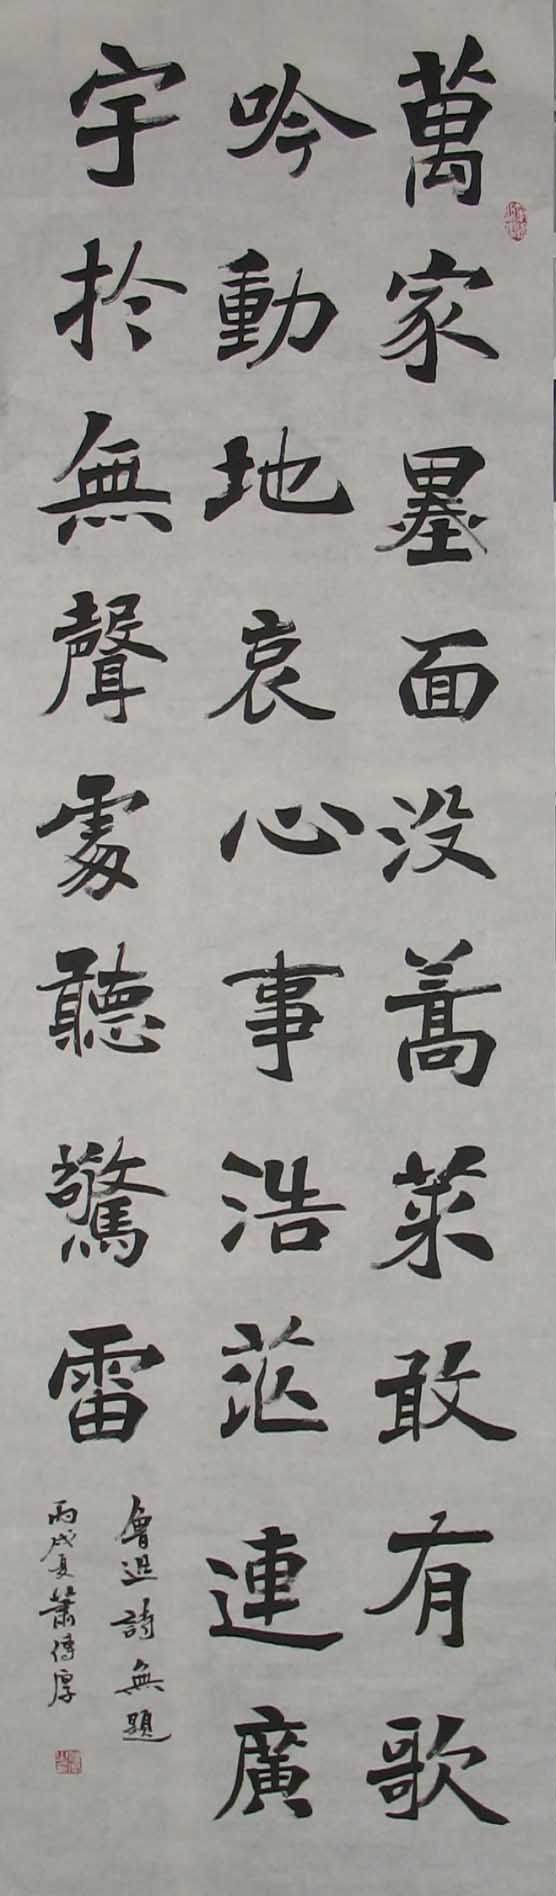 萬家墨面没蒿萊敢有歌
吟動地哀心事浩茫連廣
宇於無聲處聽驚雷
魯迅詩無題
丙戌夏蕭傳厚